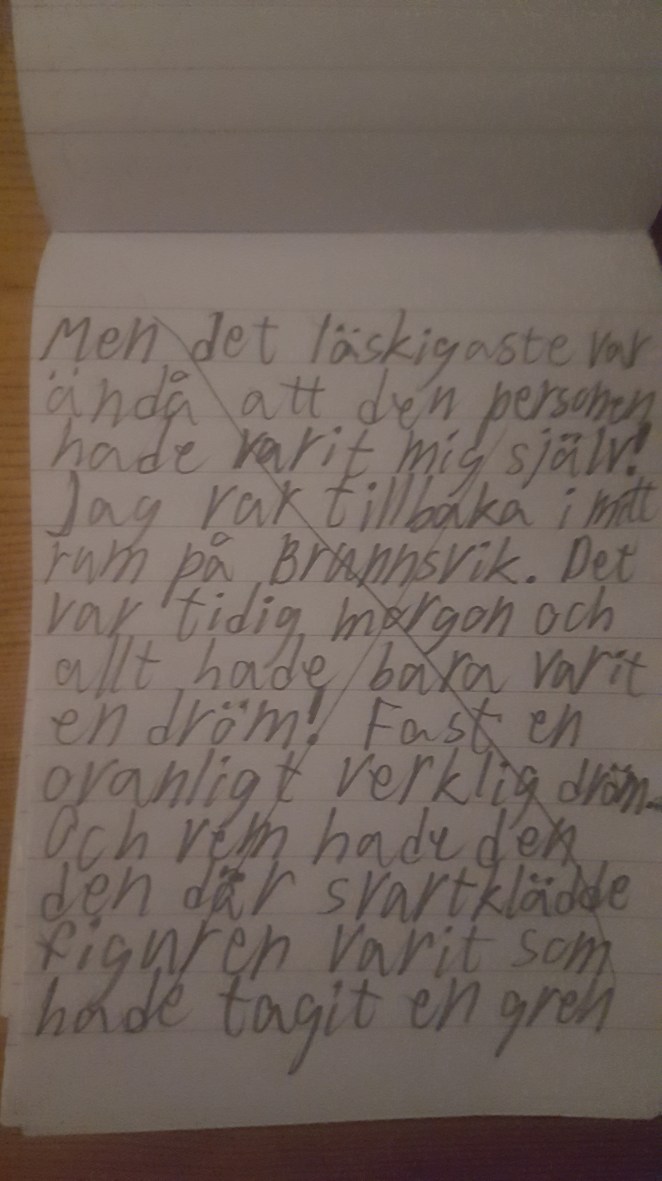 Men det läskigaste var
ändå att den personen
hade varit mig själv!
Jag var tillbaka i mitt
rum på Brunnsvik. Det
var tidig morgon och
allt hade bara varit
en dröm! Fast en
ovanligt verklig dröm.
Och vem hade den
den där svartklädde
figuren varit som
hade tagit en gren